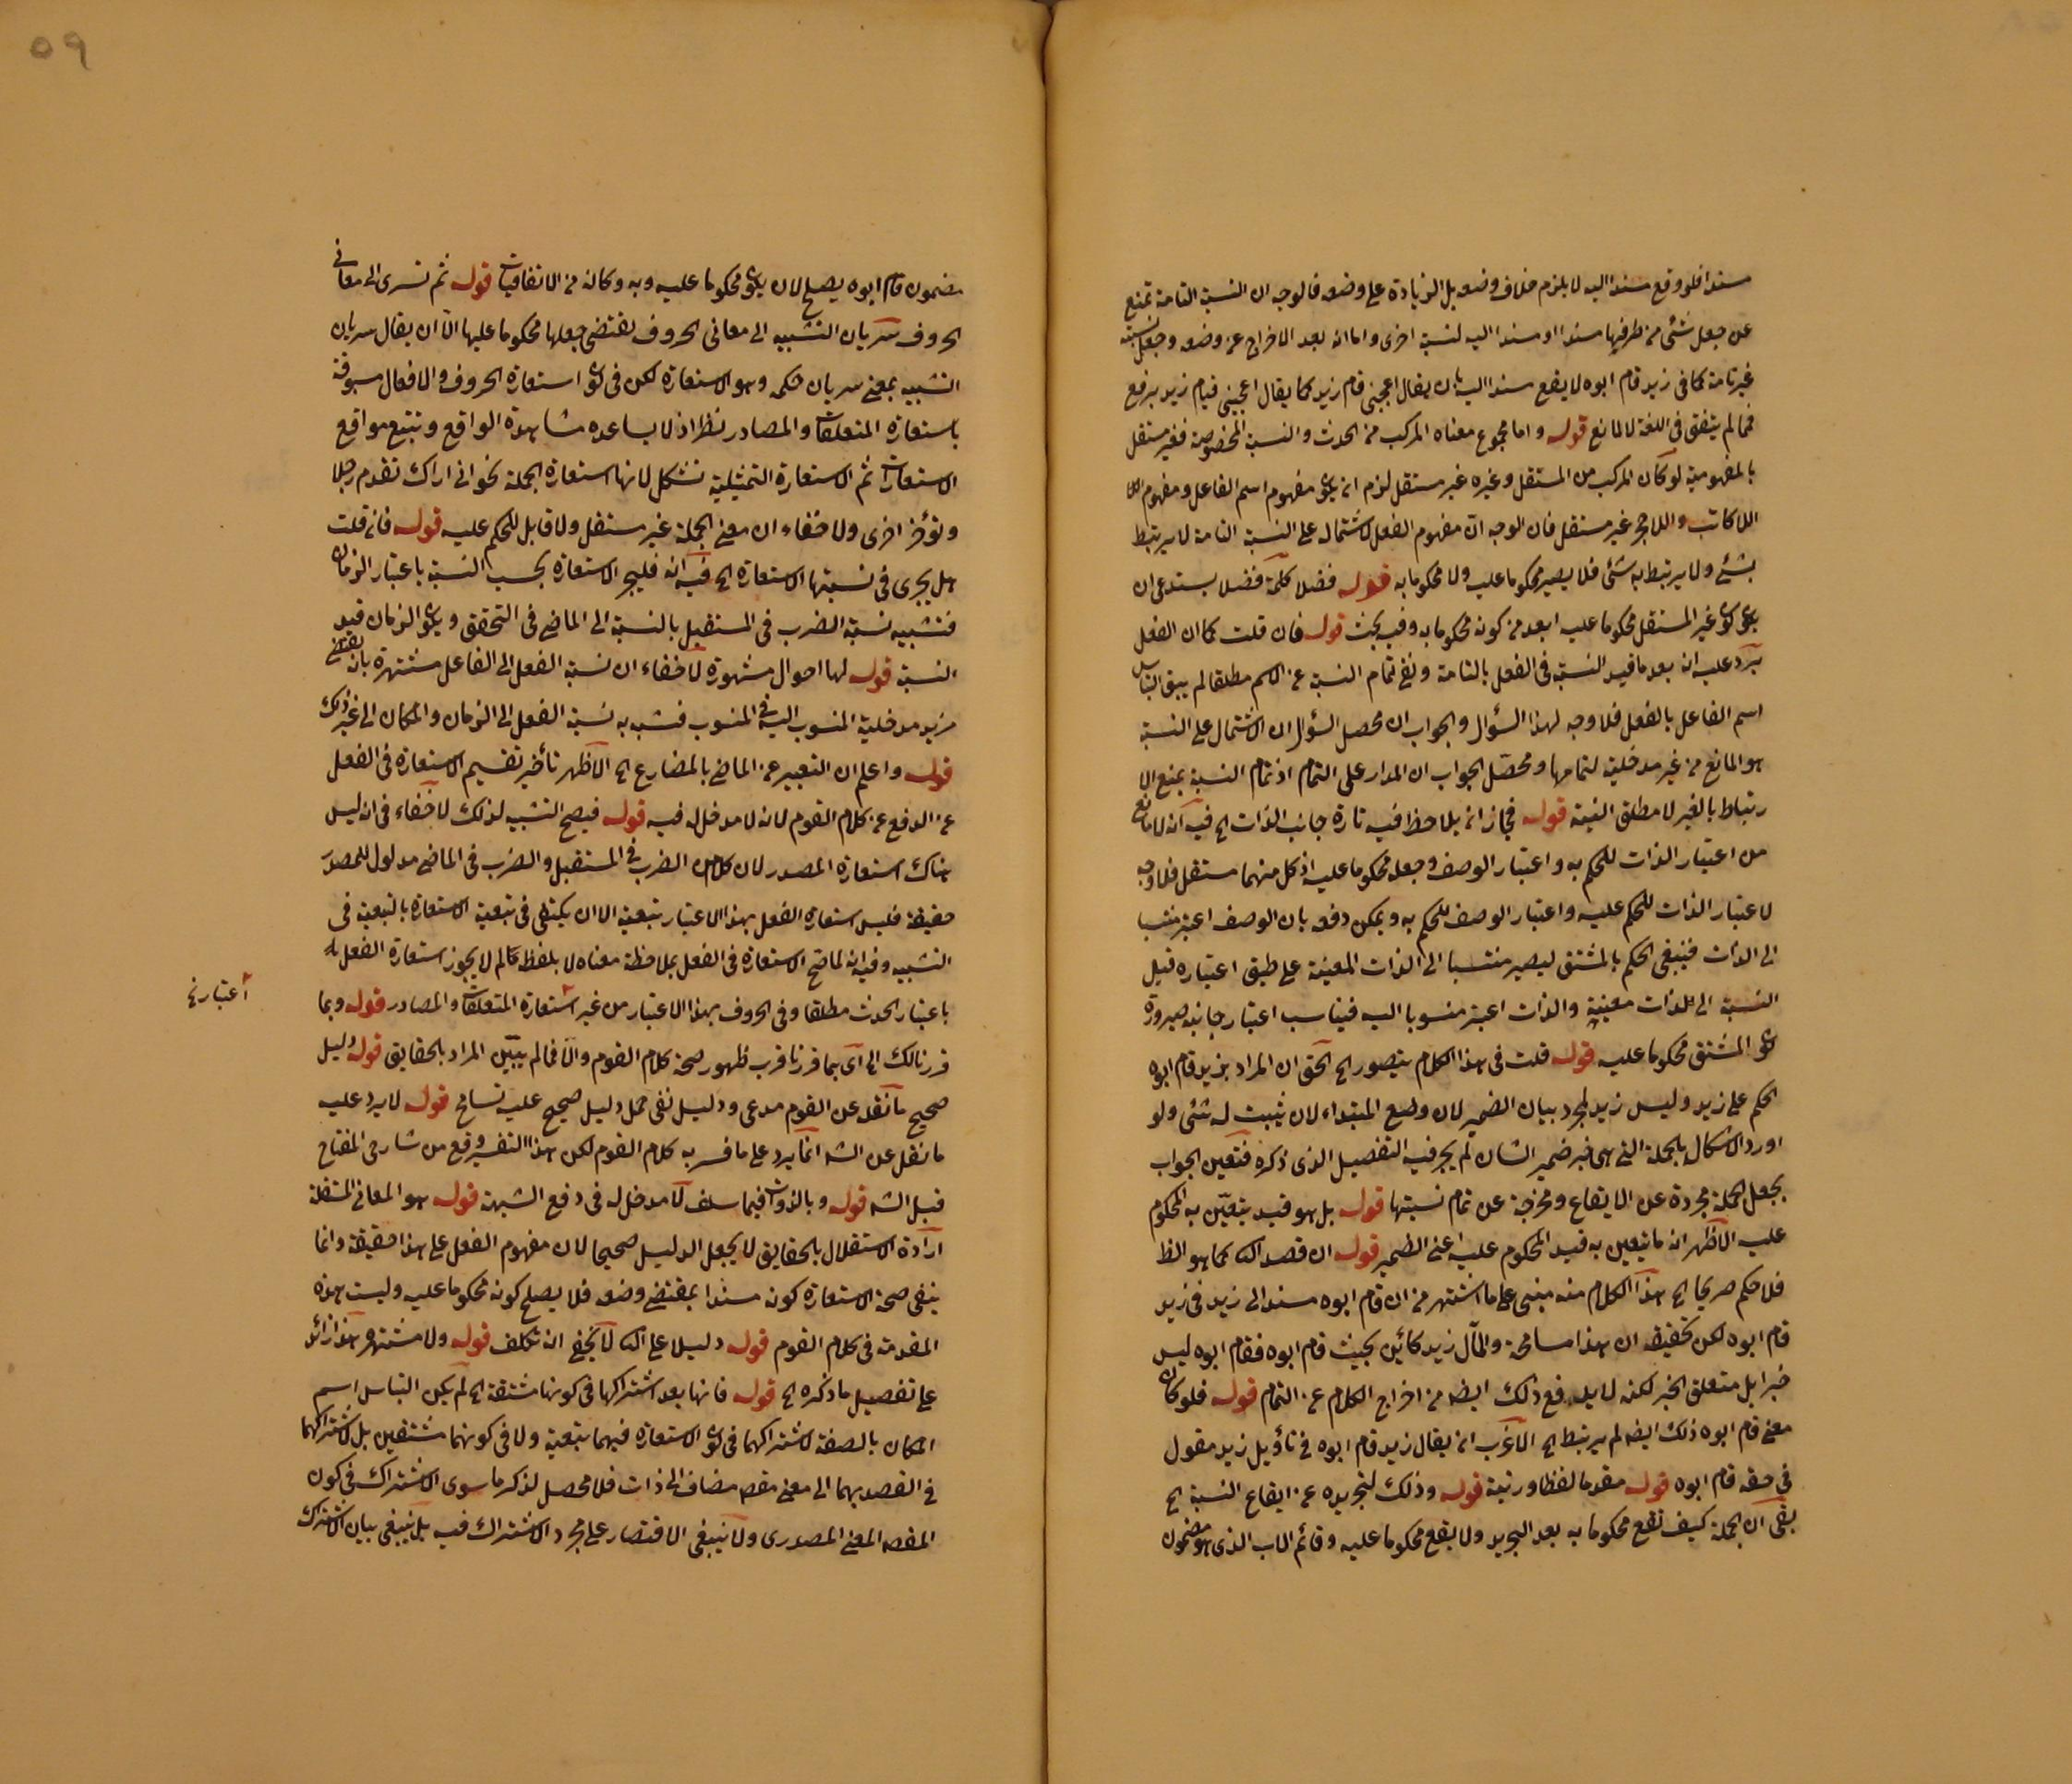 مسندا فلو وقع مسندا اليه لا يلزم خلاف وضعه بل الزيادة على وضعه فالوجه ان النسبة التامة تمنع
عن جعل شئ من طرفيها مسندا او مسندا اليه لنسبة اخرى واما انه بعد الاخراج عن وضعه وجعل نسبته
غير تامة كما فى زيد قام ابوه لا يقع مسندا اليه بان يقال اعجبنى قام زيد كما يقال اعجبنى قيام زيد برفع
فمما لم يتفق فى اللغة لا لمانع قوله واما مجموع معناه المركب من الحدث والنسبة المخصوصة فغير مستقل
بالمفهومية لو كان المركب من المستقل وغيره غير مستقل لزم ان يكون مفهوم اسم الفاعل ومفهوم
اللا كاتب واللا حجر غير مستقل فان الوجه ان مفهوم الفعل لاشتماله على النسبة التامة لا يرتبط
بشئ ولا يرتبط به شئ فلا يصير محكوما عليه ولا محكوما به قوله فضلا كلمة فضلا يستدعى ان
يكون كون غير المستقل محكوما عليه ابعد من كونه محكوما به وفيه بحث قوله فان قلت كما ان الفعل
يرد عليه انه بعد ما قيد النسبة فى الفعل بالتامة ونفى تمام النسبة عن الاسم مطلقا لم يبق التباس
اسم الفاعل بالفعل فلا وجه لهذا السؤال والجواب ان محصل السؤال ان الاشتمال على النسبة
هو المانع من غير مدخلية لتمامها ومحصل الجواب ان المدار على التمام اذ تمام النسبة يمنع الا
رتباط بالغير لا مطلق النسبة قوله فجاز ان يلاحظ فيه تارة جانب الذات الخ فيه انه لا مانع
من اعتبار الذات للحكم به واعتبار الوصف وجعله محكوما عليه اذ كل منهما مستقل فلا وجه
لاعتبار الذات للحكم عليه واعتبار الوصف للحكم به ويمكن دفعه بان الوصف اعتبر منتسبا
الى الذات فينبغى الحكم بالمشتق ليصير منتسبا الى الذات المعينة على طبق اعتباره قبل
النسبة الى الذات معينة والذات اعتبر منسوبا اليه فيناسب اعتبار جانبه صيرورة
كون المشتق محكوما عليه قوله قلت فى هذا الكلام يتصور الخ الحق ان المراد بزيد قام ابوه
الحكم على زيد وليس زيد لمجرد بيان الضمير لان وضع المبتداء لان يثبت له شئ ولو
اورد الاشكال بالجملة التى هى خبر ضمير الشان لم يجر فيه التفصيل الذى ذكره فتعين الجواب
بجعل الجملة مجردة عن الايقاع ومخرجة عن تمام نسبتها قوله بل هو قيد يتعين به المحكوم
عليه الاظهر انه ما يتعين به قيد المحكوم عليه اعنى الضمير قوله ان قصد الك كما هو الظ
فلا حكم صريحا الخ هذا الكلام منه مبنى على ما اشتهر من ان قام ابوه مسند الى زيد فى زيد
قام ابوه لكن تحقيقه ان هذا مسامحة والمآل زيد كائن بحيث قام ابوه فقام ابوه ليس
خبرا بل متعلق الخبر لكنه لا يدفع ذلك ايضه من اخراج الكلام عن التمام قوله فلو كان
معنى قام ابوه ذلك ايضه لم يرتبط الخ الاغرب ان يقال زيد قام ابوه فى تأويل زيد مقول
فى حقه قام ابوه قوله مقدما لفظا ورتبة قوله وذلك لتجريده عن ايقاع النسبة الخ
بقى ان الجملة كيف تقع محكوما به بعد التجريد ولا يقع محكوما عليه وقائم الاب الذى هو مضمون
مضمون قام ابوه يصلح لان يكون محكوما عليه وبه وكانه من الاتفاقيات قوله ثم تسرى الى معانى
الحروف سريان التشبيه الى معانى الحروف يقتضى جعلها محكوما عليها الا ان يقال سريان
التشبيه بمعنى سريان حكمه وهو الاستعارة لكن فى كون استعارة الحروف والافعال مسبوقة
باستعارة المتعلقات والمصادر نظر اذ لا يساعده مشاهدة الواقع وتتبع مواقع
الاستعارات ثم الاستعارة التمثيلية تشكل لانها استعارة الجملة نحو انى اراك تقدم رجلا
وتؤخر اخرى ولا خفاء ان معنى الجملة غير مستقل ولا قابل للحكم عليه قوله فان قلت
هل يجرى فى نسبتها الاستعارة الخ فيه انه فليجر الاستعارة بحسب النسبة باعتبار الزمان
فتشبيه نسبة الضرب فى المستقبل بالنسبة الى الماضى فى التحقق ويكون الزمان قيد
النسبة قوله لها احوال مشهورة لا خفاء ان نسبة الفعل الى الفاعل مشتهرة بان يقتضى
مزيد مدخلية المنسوب اليه فى المنسوب فشبه به نسبة الفعل الى الزمان والمكان الى غير ذلك
قوله واعلم ان التعبير عن الماضى بالمضارع الخ الاظهر تأخير تقسيم الاستعارة فى الفعل
عن الدفع عن كلام القوم لانه لا مدخل له فيه قوله فيصح التشبيه لذلك لا خفاء فى انه ليس
هناك استعارة المصدر لان كلا من الضرب فى المستقبل والضرب فى الماضى مدلول للمصدر
حقيقة فليس استعارة الفعل بهذا الاعتبار بتبعية الا ان يكتفى فى تبعية الاستعارة بالتبعية فى
التشبيه وفيه انه لما صح الاستعارة فى الفعل بملاحظة معناه لا بلفظه كما لم لا يجوز استعارة الفعل
باعتبار الحدث مطلقا وفى الحروف بهذا الاعتبار من غير استعارة المتعلقات والمصادر قوله وبما
اعتبار نخ
قررنا لك الخ اى بما قررنا قرب ظهور صحة كلام القوم والا فما لم يبين المراد بالحقايق قوله دليل
صحيح ما نقل عن القوم مدعى ودليل نفى حمل دليل صحيح عليه تسامح قوله لا يرد عليه
ما نقل عن الشه انما يرد على ما فسر به كلام القوم لكن هذا التفسير وقع من شارحى المفتاح
قبل الشه قوله وبالذوات فيما سلف لا مدخل له فى دفع الشبهة قوله هو المعانى المستقلة
ارادة الاستقلال بالحقايق لا يجعل الدليل صحيحا لان مفهوم الفعل على هذا حقيقة وانما
ينفى صحة الاستعارة كونه مسندا بمقتضى وضعه فلا يصلح كونه محكوما عليه وليست هذه
المقدمة فى كلام القوم قوله دليلا على الك لا يخفى انه تكلف قوله ولا مشتهر هذا زائد
على تفصيل ما ذكره الخ قوله فانها بعد اشتراكها فى كونها مشتقة الخ لم يكن التباس اسم
المكان بالصفة لاشتراكهما فى كون الاستعارة فيهما تبعية ولا فى كونهما مشتقين بل لاشتراكهما
فى القصد بهما الى معنى مقصه مضاف الى ذات فلا محصل لذكر ما سوى الاشتراك فى كون
المقصه المعنى المصدرى ولا ينبغى الاقتصار على مجرد الاشتراك فيه بل ينبغى بيان الاشتراك